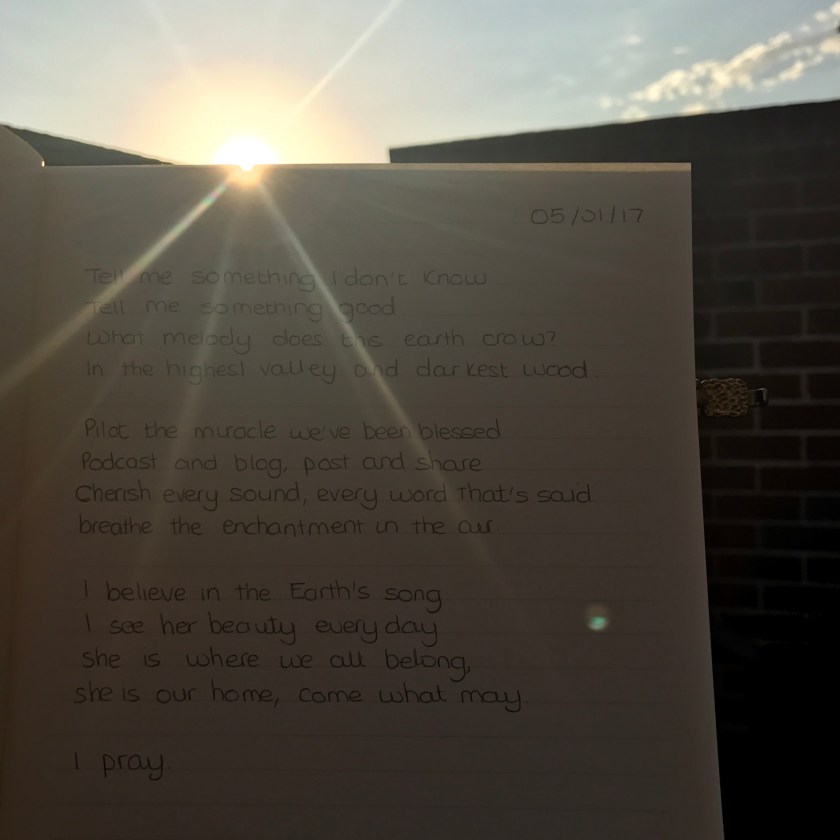 05/01/17
Tell me something I don't know
Tell me something good
What melody does this earth crow?
In the highest valley and darkest wood.
Pilot the miracle we've been blessed
Podcast and blog, post and share
Cherish every sound, every word that's said
breathe the enchantment in the air.
I believe in the Earth's song
I see her beauty every day
She is where we all belong,
she is our home, come what may.
I pray.